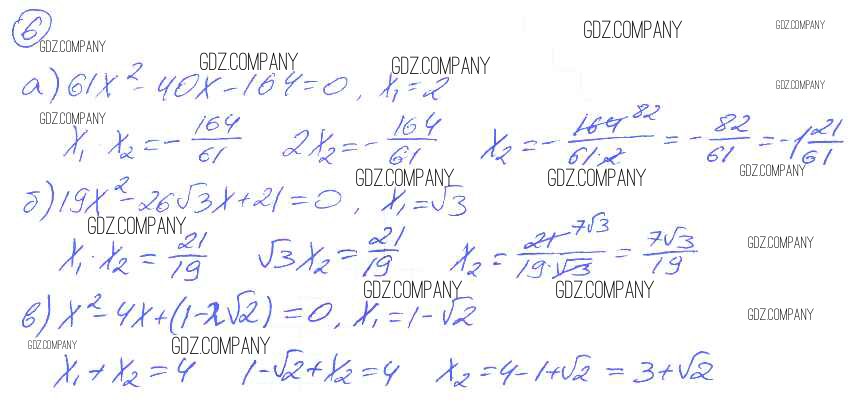 6
GDZ.COMPANY GDZ.COMPANY GDZ.COMPANY
GDZ.COMPANY GDZ.COMPANY GDZ.COMPANY
а) 61x² - 40x - 164 = 0, x₁ = 2
GDZ.COMPANY
x₁ · x₂ = -164/61 2x₂ = -164/61 x₂ = -164 82/61·2 = -82/61 = -1 21/61
GDZ.COMPANY GDZ.COMPANY GDZ.COMPANY
б) 19x² - 26√3x + 21 = 0, x₁ = √3
GDZ.COMPANY GDZ.COMPANY
x₁ · x₂ = 21/19 √3x₂ = 21/19 x₂ = 21 7√3/19·√3 = 7√3/19
GDZ.COMPANY GDZ.COMPANY GDZ.COMPANY
в) x² - 4x + (1-2√2) = 0, x₁ = 1-√2
GDZ.COMPANY GDZ.COMPANY
x₁ + x₂ = 4 1-√2 + x₂ = 4 x₂ = 4-1+√2 = 3+√2